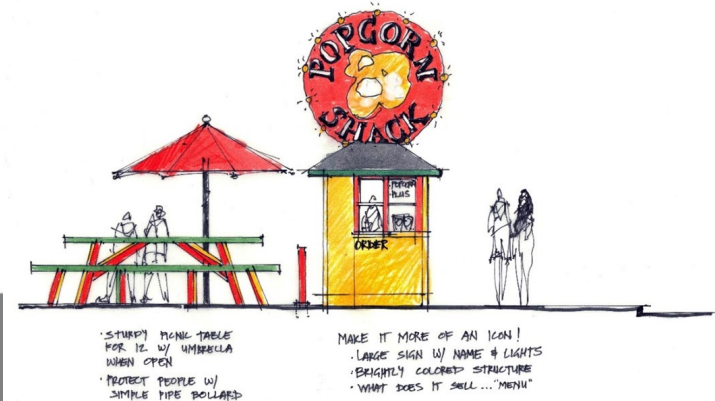 POPCORN
SHACK
POPCORN
PLUS
ORDER
· STURDY PICNIC TABLE
FOR 12 W/ UMBRELLA
WHEN OPEN
· PROTECT PEOPLE W/
SIMPLE PIPE BOLLARD
MAKE IT MORE OF AN ICON!
· LARGE SIGN W/ NAME & LIGHTS
· BRIGHTLY COLORED STRUCTURE
· WHAT DOES IT SELL... "MENU"